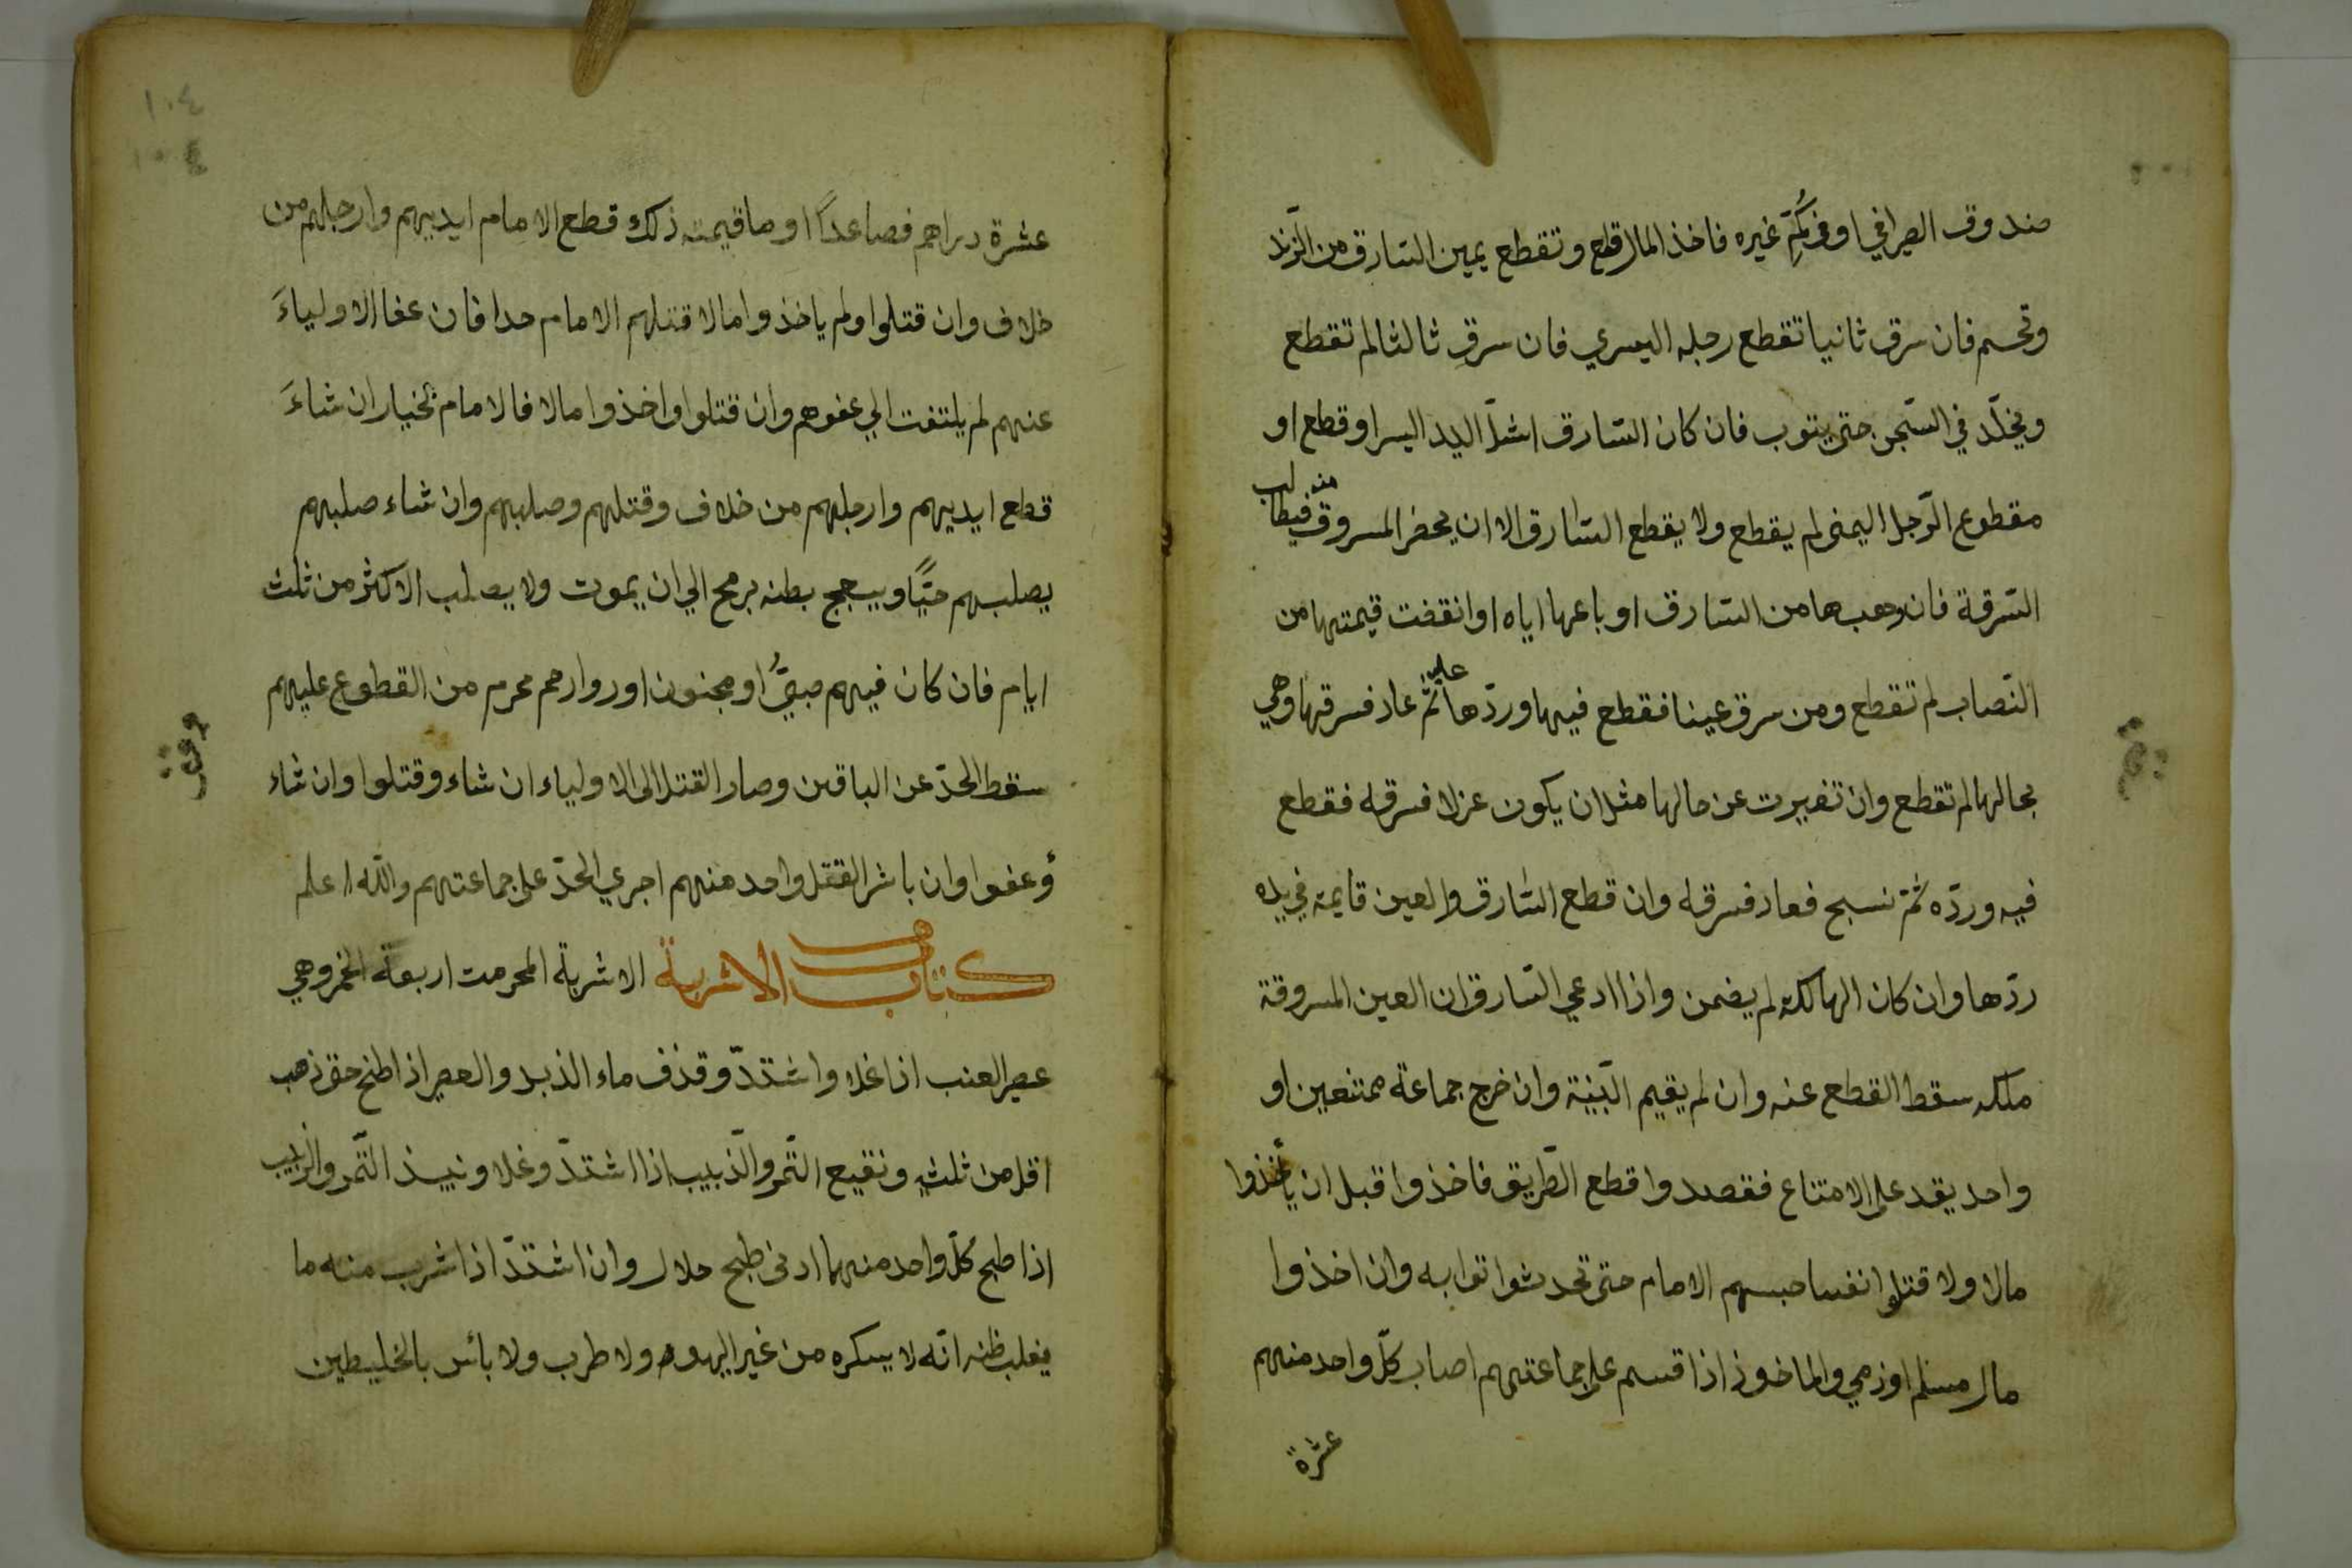 صندوق الصرافي او في كُمِّ غيره فاخذ المال قطع وتقطع يمين السّارق من الزّند
وتحسم فان سرق ثانيا تقطع رجله اليسري فان سرق ثالثا لم تقطع
ويخلّد في السّجن حتى يتوب فان كان السّارق اشلّ اليد اليسرا وقطع او
مقطوع الرّجل اليمنى لم يقطع ولا يقطع السّارق الا ان يحضر المسروق منه فيطالب
السّرقة فان وهبها من السّارق او باعها اياه او انقفت قيمتها من
النّصاب لم تقطع ومن سرق عينا فقطع فيها وردّها عليه ثمّ عاد فسرقها وهي
بحالها لم تقطع وان تغيرت عن حالها مثل ان يكون عزلا فسرقه فقطع
فيه وردّه ثمّ نسبح فعاد فسرقه وان قطع السّارق والعين قايمة في يده
ردّها وان كان الهالكة لم يضمن واذا ادعي السّارق ان العين المسروقة
ملكه سقط القطع عنه وان لم يقيم البّينة وان خرج جماعة ممتنعين او
واحد يقد على الامتناع فقصدوا قطع الطّريق فاخذوا قبل ان يأخذوا
مالا ولا قتلوا نفسا حبسهم الامام حتى تحدثوا توابه وان اخذوا
مال مسلم او ذمي والماخوذ اذا قسم على جماعتهم اصاب كلّ واحد منهم
عشرة
١٠٤
١٠٤
عشرة دراهم فصاعدًا او ما قيمته ذلك قطع الامام ايديهم وارجلهم من
خلاف وان قتلوا ولم ياخذوا مالا قتلهم الامام حدا فان عفا الاولياءَ
عنهم لم يلتفت الي عفوهم وان قتلوا واخذوا مالا فالامام بخيار ان شاءَ
قطع ايديهم وارجلهم من خلاف وقتلهم وصلبهم وان شاء صلبهم
يصلبهم حيًّا ويبعج بطنه برمح الي ان يموت ولا يصلب الاكثر من ثلث
ايام فان كان فيهم صبيٌّ او مجنون او روارحم محرم من القطوع عليهم
سقط الحدّ عن الباقين وصار القتل الى الاولياء ان شاء وقتلوا وان شاء
وعفوا وان باشر القتل واحد منهم اجري الحدّ على جماعتهم والله اعلم
كتاب الاشربة الاشربة المحرمت اربعة الخمر وهي
عصير العنب اذا غلا واشتدّ وقذف ماء الذبد والعصير اذا طبخ حتى ذهب
اقل من ثلثيه ونقيع التّمر والذّبيب اذا اشتدّ وغلا ونبيذ التّمر والزبيب
اذا طبح كلّ واحد منهما ادنى طبح حلال وان اشتدّ اذا شرب منه ما
يغلب ظنه انّه لا يسكره من غير اليهود ولا طرب ولا بائس بالخليطين
وقف